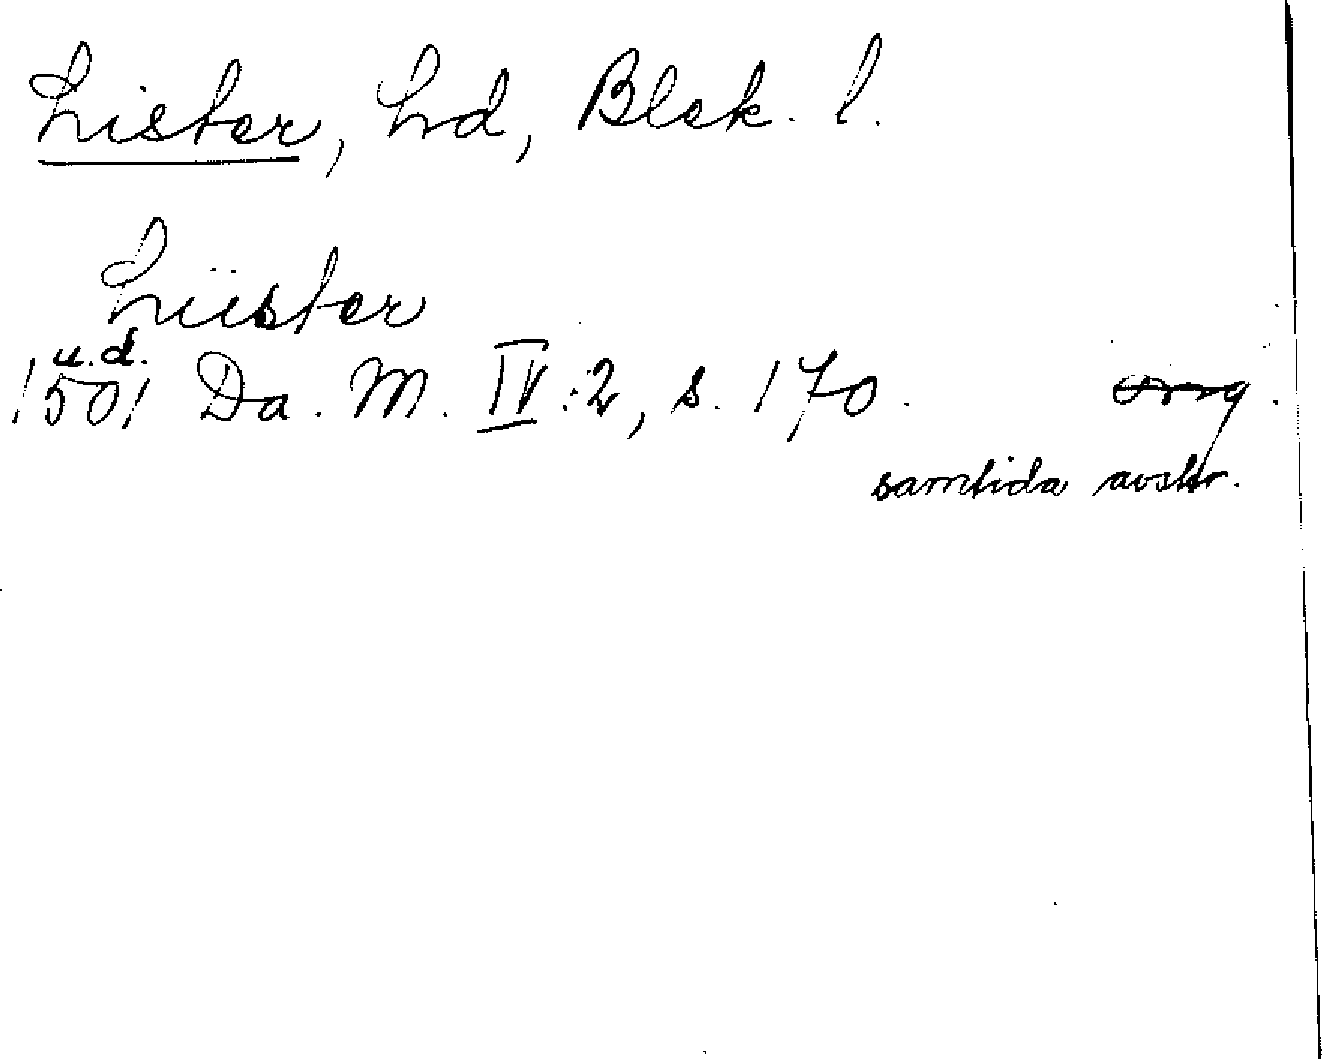 Lister, hd, Blek. l.
Liister
u.d.
1501 Da. M. IV:2, s. 170.
org.
samtida avskr.